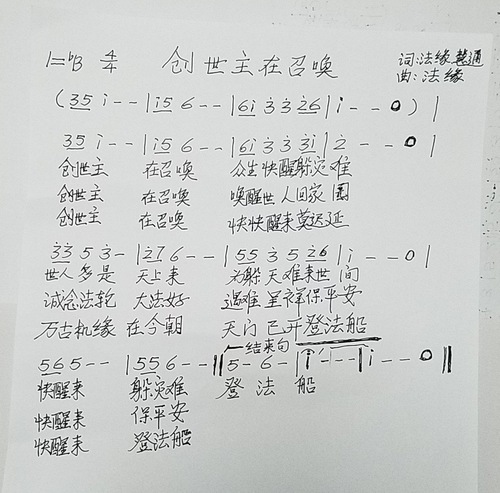 1=ᵇB 4/4 创世主在召唤 词:法缘 慧通
曲:法缘
(35 i - - | i5 6 - - | 6i 3 3 26 | i - - 0 ) |
35 i - - | i5 6 - - | 6i 3 3 3i | 2 - - 0 |
创世主 在召唤 众生快醒躲灾难
创世主 在召唤 唤醒世人回家园
创世主 在召唤 快快醒来莫迟延
33 5 3 - | 276 - - | 55 3 5 26 | i - - 0 |
世人多是 天上来 为躲天难来世间
诚念法轮 大法好 遇难呈祥保平安
万古机缘 在今朝 天门已开登法船
结束句
565 - - | 556 - - || 5 - 6 - | i - - - | i - - 0 ||
快醒来 躲灾难 登法船
快醒来 保平安
快醒来 登法船